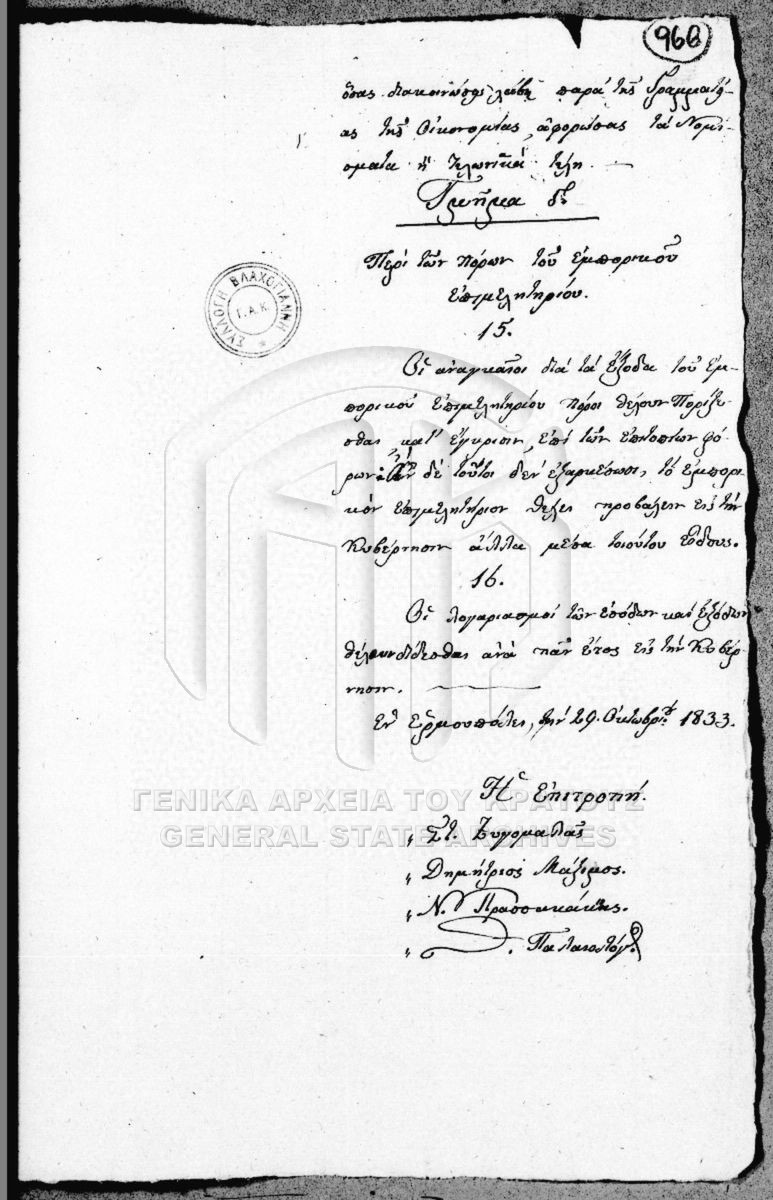 966
ὅσας διακοινώσεις λάβῃ παρὰ τῆς Γραμματεί-
ας τῆς Οἰκονομίας, ἀφορώσας τὰ Νομί-
σματα ἢ τελωνικὰ τέλη.
Τμῆμα δ.
Περὶ τῶν πόρων τοῦ ἐμπορικοῦ
ἐπιμελητηρίου.
15.
Οἱ ἀναγκαῖοι διὰ τὰ ἔξοδα τοῦ ἐμ-
πορικοῦ ἐπιμελητηρίου πόροι θέλουν πορίζε-
σθαι κατ' ἔγκρισιν, ἐπὶ τῶν ἐπιτοπίων φό-
ρων. ἂν δὲ τοῦτοι δὲν ἐξαρκέσωσι, τὸ ἐμπορι-
κὸν ἐπιμελητήριον θέλει προβάλειν εἰς τὴν
Κυβέρνησιν ἄλλα μέσα τοιούτου εἴδους.
16.
Οἱ λογαριασμοὶ τῶν ἐσόδων καὶ ἐξόδων
θέλουν δίδεσθαι ἀνὰ πᾶν ἔτος εἰς τὴν Κυβέρ-
νησιν.
Ἐν Ἑρμουπόλει, τὴν 29. Ὀκτωβρίου 1833.
Ἡ Ἐπιτροπή.
„ Στ. Ζυγομαλᾶς
„ Δημήτριος Μάξιμος.
„ Ν. Πρασσακάκης.
„ Δ. Παλαιολόγ.
ΣΥΛΛΟΓΗ ΒΛΑΧΟΓΙΑΝΝΗ
Γ.Α.Κ.
ΓΕΝΙΚΑ ΑΡΧΕΙΑ ΤΟΥ ΚΡΑΤΟΥΣ
GENERAL STATE ARCHIVES